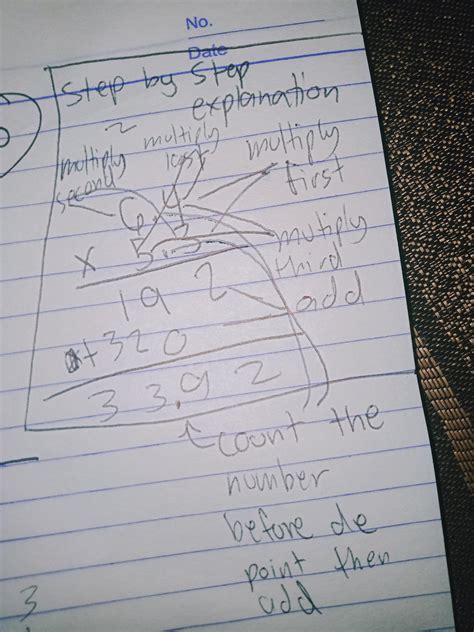 No.
Date
Step by Step
explanation
2
multiply
last
multiply
first
multiply
second
6 4
x 5.3
mutiply
third
1 9 2
add
+ 3 2 0
3 3.9 2
count the
number
before de
point then
add
3